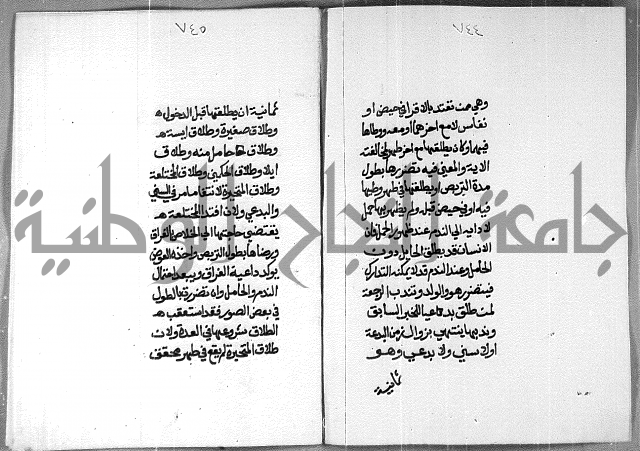 ٧٤٤
وهي ممن تعتد بالاقراء في حيض او
نفاس لا مع اخرهما او معه ووطئها
فيه او كان يطلقها مع اخر طهر
الاية والمعنى فيه تضررها بطول
مدة التربص او يطلقها في طهر وطئها
فيه او في حيض قبله ولم يظهر بها حمل
لادايه الى الندم عند ظهور الحمل فان
الانسان قد يطلق الحايل دون
الحامل وعند الندم قد لا يمكنه التدارك
فيتضرر هو والولد وتندب الرجعة
لمن طلق بدعيا للخبر السابق
وندبها ينتهي بزوال زمن البدعة
اولا سني ولا بدعي وهو
ثمانية
٧٤٥
ثمانية ان يطلقها قبل الدخول
وطلاق صغيرة وطلاق ايسة
وطلاق حامل منه وطلاق
ايلا وطلاق الحكمين وطلاق المختلعة
وطلاق المتحيرة لانتفا ما مر في السني
والبدعي ولان افتدا المختلعة
يقتضي حاجتها الى الخلاص بالفراق
ورضاها بطول التربص واخذه العوض
يوكد داعية الفراق ويبعد احتمال
الندم والحامل وان تضررت بالطول
في بعض الصور فقد استعقب
الطلاق شروعها في العدة ولان
طلاق المتحيرة لم يقع في طهر محقق
جامعة النجاح الوطنية